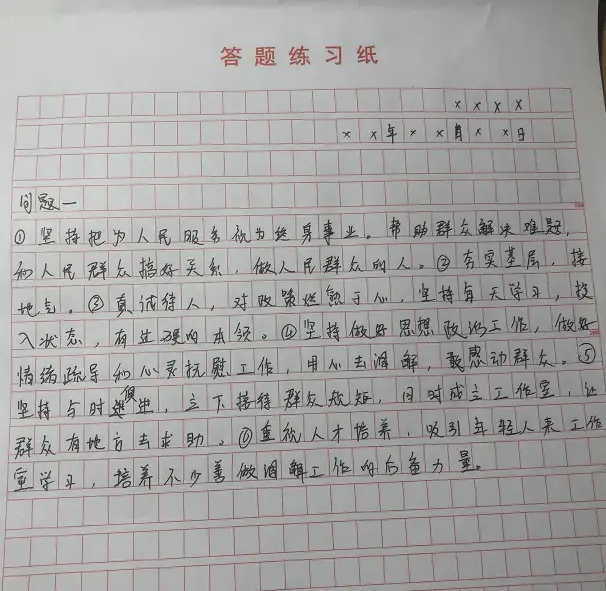 答题练习纸
××××
××年××月××日
问题一
①坚持把为人民服务视为终身事业。帮助群众解决难题,
和人民群众搞好关系,做人民群众的人。②夯实基层,接
地气。③真诚待人,对政策烂熟于心,坚持每天学习,投
入状态,有过硬的本领。④坚持做好思想政治工作,做好
情绪疏导和心灵抚慰工作,用心去调解,敢感动群众。⑤
坚持与时俱进,立下接待群众规矩,同时成立工作室,让
群众有地方去求助。⑥重视人才培养,吸引年轻人来工作
室学习,培养不少善做调解工作的后备力量。